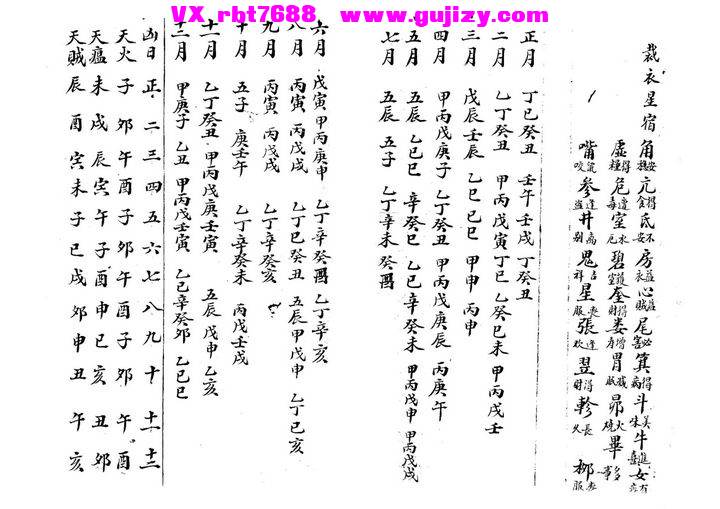 VX_rbt7688  www.gujizy.com
裁衣星宿
角 亢 氐 房 心 尾 箕 斗 牛 女
虛 危 室 碧 奎 娄 胃 昴 畢
嘴 參 井 鬼 星 張 翌 軫 柳
正月 丁巳癸丑 壬午壬戌丁癸丑
二月 乙丁癸丑 甲丙戊寅丁巳乙癸巳未 甲丙戌壬
三月 戊辰壬辰 乙巳巳巳 甲申 丙申
四月 甲丙戊庚子 乙丁癸丑 甲丙戊庚辰 丙庚午
五月 五辰乙巳巳 辛癸巳 乙巳辛癸未 甲丙戊申甲丙戊戌
七月 五辰 五子 乙丁辛未 癸酉
六月 戊寅甲丙庚申 乙丁辛癸酉 乙丁辛亥
八月 丙寅 丙戊戌 乙丁巳癸丑 五辰甲戊申 乙丁巳亥
九月 丙寅 丙戊戌 乙丁辛癸亥
十月 五子 庚壬午 乙丁辛癸未 丙戊壬戌
十一月 乙丁癸丑 甲丙戊庚壬寅 五辰 戊申 乙亥
十二月 甲庚子 乙丑 甲丙戊壬寅 乙巳辛癸卯 乙巳巳
凶日 正 二 三 四 五 六 七 八 九 十 十一 十二
天火 子 卯 午 酉 子 卯 午 酉 子 卯 午 酉
天瘟 未 戌 辰 寅 午 子 酉 申 巳 亥 丑 卯
天賊 辰 酉 寅 未 子 巳 戌 卯 申 丑 午 亥